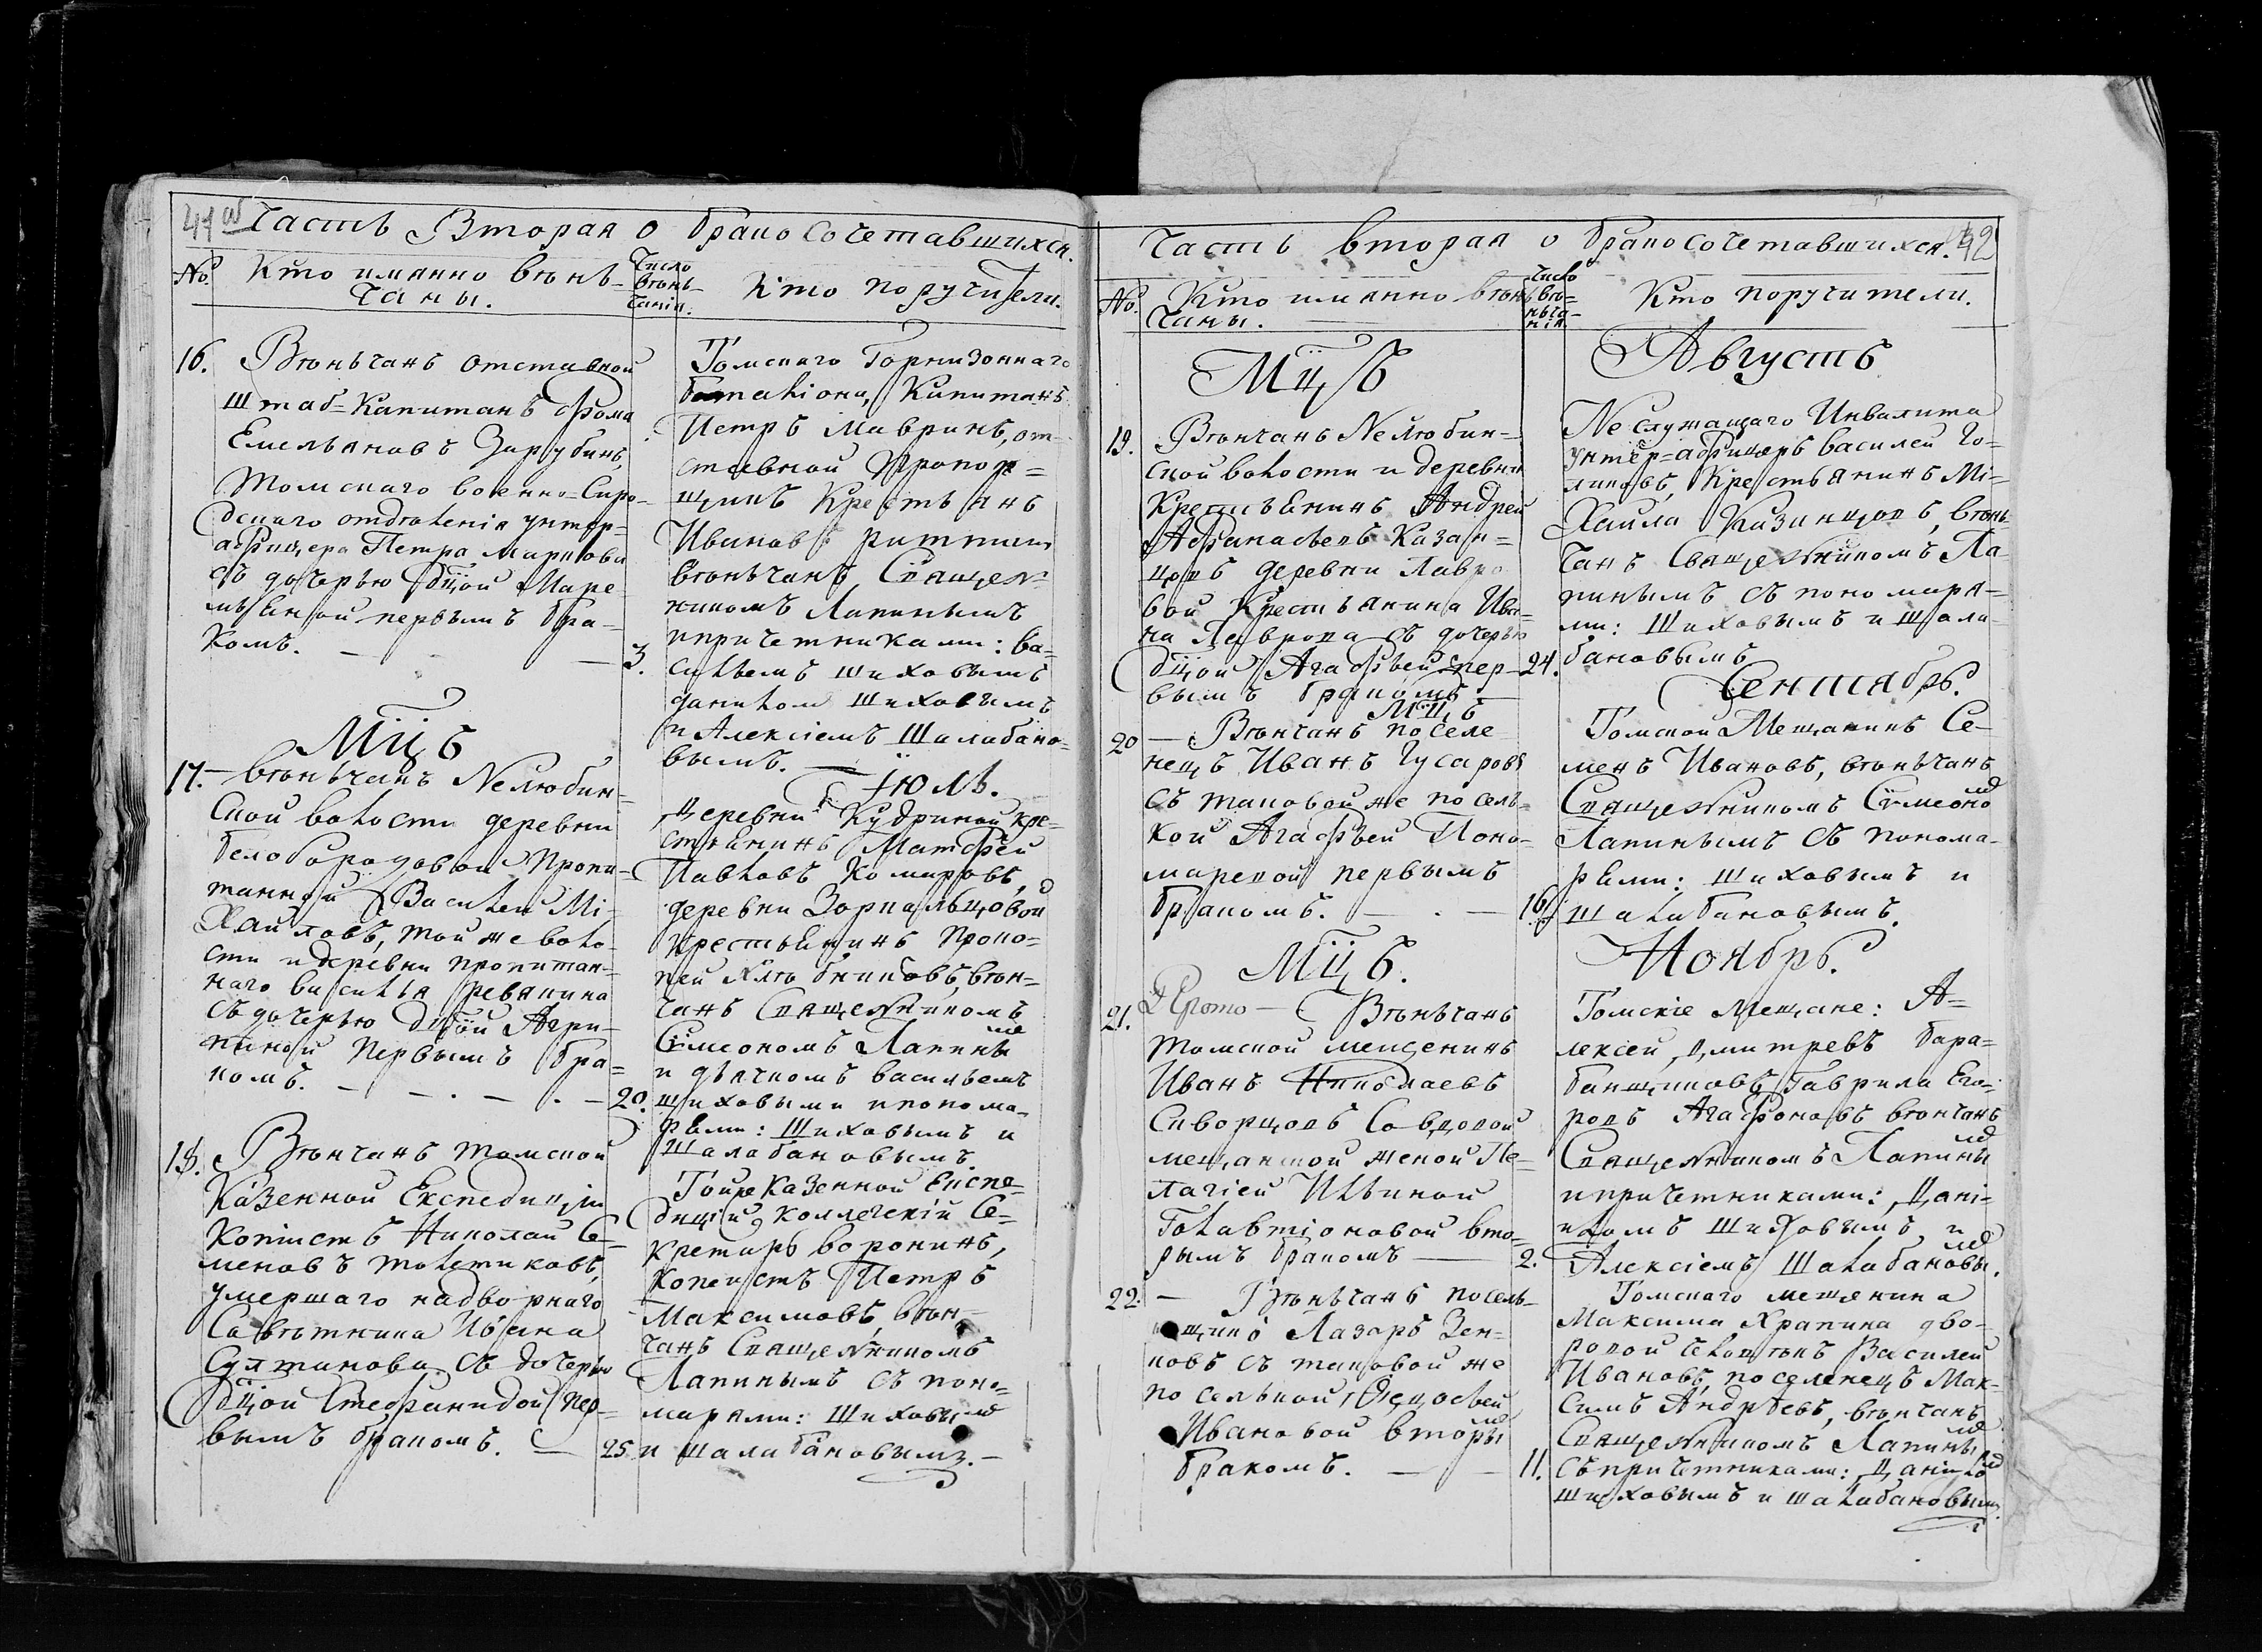 41 об
Часть Вторая о бракосочетавшихся.
№ Кто имянно вѣнь-
чаны.
Число
вѣнь-
чанія.
Кто поручители.
16. Вѣньчанъ отставной
Штаб=Капитанъ Фома
Емельяновъ Зарубинъ,
Томскаго военно=Сиро-
дскаго отдѣленія унтер=
афицера Петра Маркова
съ дочерью дѣцой Маре-
мьяной первымъ бра-
комъ. — — 3.
Томскаго Горнизоннаго
баталіона, Капитанъ
Петръ Мавринъ, от-
ставной Прапор=
щикъ Крестьянъ
Ивановъ
вѣньчанъ Священ-
никомъ Лапинымъ
и причетниками: Ва=
сильемъ Шиховымъ
даниломъ Шиховымъ
и Алексіемъ Шалабано-
вымъ. —
Мцъ
Іюль.
17. — вѣньчанъ Нелюбин-
ской волости деревни
белобородовой Пропи-
танной Василей Мі-
хайловъ, той же воло-
сти и деревни пропитан-
наго василья Ревякина
съ дочерью дѣцой Агри-
пиной первымъ бра=
комъ. — . — . — 20.
Деревни Кудриной кре-
стьянинъ Матфей
Павловъ Комаровъ,
деревни Зоркальцовой
крестьянинъ Проко=
пей Хлѣбниковъ, вѣн=
чанъ Священникомъ
Сімеономъ Лапинымъ
и дьячкомъ васильемъ
шиховыми и понома-
рями: Шиховымъ и
Шалабановымъ.
18. Вѣнчанъ томской
Казенной Експедиціи
Копіистъ Николай Се-
меновъ толстиковъ,
умершаго надворнаго
Совѣтника Ивана
Султанова съ дочерью
дѣцой Стефанидой пер-
вымъ бракомъ. — 25.
Той же Казенной Експе-
диціи, коллегскій Се-
кретарь воронинъ,
копеистъ Петръ
Максимовъ, вѣн-
чанъ Священникомъ
Лапинымъ съ поно-
марями: Шиховымъ
и шалабановымъ. —
42
Часть вторая о бракосочетавшихся.
№ Кто имянно вѣнь
чаны.
Число
вѣ=
ньча-
нія.
Кто поручители.
Мцъ
Августъ
19. Вѣнчанъ Нелюбин-
ской волости и деревни
Крестьянинъ Андрей
Афанасьевъ Казан=
цовъ деревни Лавро
вой крестьянина Ива-
на Лаврова съ дочерью
дѣцой Агафьей пер- 24.
вымъ бракомъ —
Неслужащаго Инвалита
унтер=афицеръ василей Го-
ликовъ, Крестьянинъ Мі-
хайла Казанцовъ, вѣнь-
чанъ Священникомъ Ла
пинымъ съ пономаря-
ми: Шиховымъ и Шала-
бановымъ
Мцъ
Сентябрь.
20 — Вѣнчанъ поселе
нецъ Иванъ Гусаровъ
съ таковой же посель-
кой Агафьей Поно-
маревой первымъ
бракомъ. — . — 16.
Томской Мещанинъ Се-
менъ Ивановъ, вѣньчанъ
Священникомъ Сімеоно
Лапинымъ съ понома-
рями: Шиховымъ и
Шалабановымъ.
Мцъ.
Ноябрь.
21. — Вѣньчанъ
томской мещенинъ
Иванъ Николаевъ
Скворцовъ Совдовой
мещанской женой Пе=
лагіей Ильиной
Галактіоновой вто-
рымъ бракомъ — 2.
Томскіе мещане: А=
лексей Дмитревъ бара=
банщиковъ, Гаврила Его-
ровъ Агафоновъ вѣнчанъ
Священникомъ Лапины
и причетниками: Дані-
иломъ Шиховымъ, и
Алексіемъ Шалабановы.
22. — Вѣньчанъ посель-
щикъ Лазарь Зен-
ковъ съ таковой же
посельской Федосьей
Ивановой вторы
бракомъ. — — 11.
Томскаго мещенина
Максима Храпина дво-
ровой человѣкъ Василей
Ивановъ, поселенецъ Мак-
симъ Андрѣевъ, вѣнчанъ
Священникомъ Лапины
съ причетниками: Даніило
шиховымъ и шалабановым.